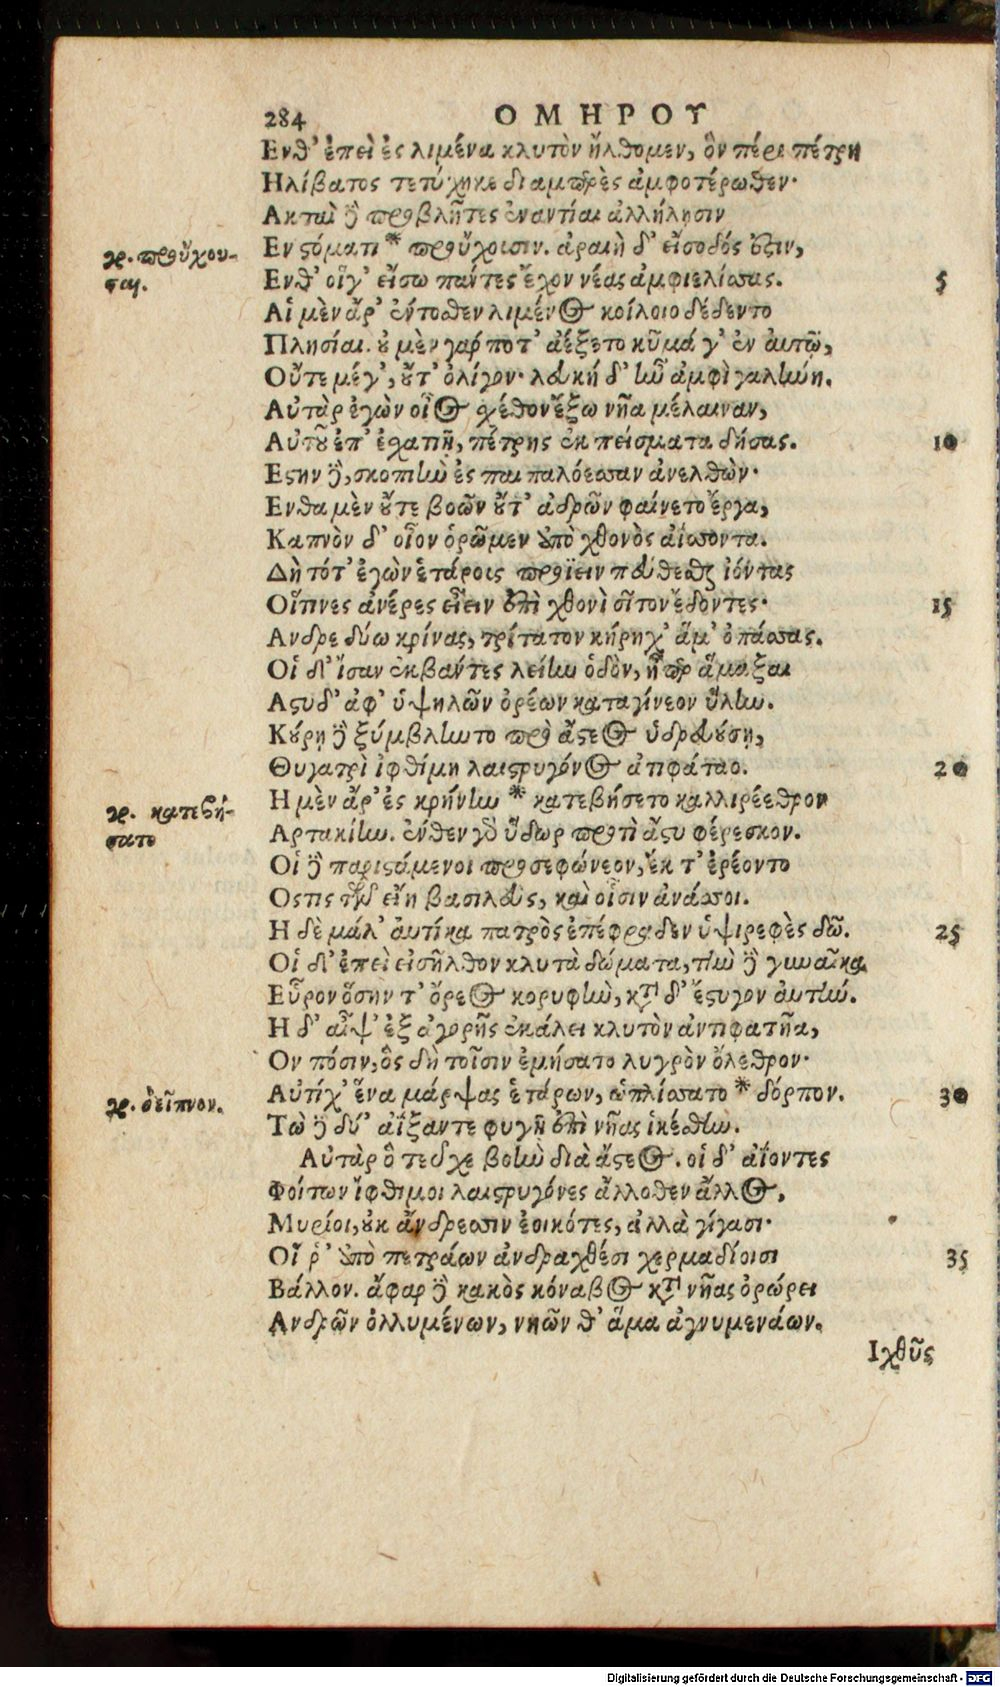 284 ΟΜΗΡΟΥ
Ενθ' ἐπεὶ ἐς λιμένα κλυτὸν ἤλθομεν, ὃν πέρι πέτρη
Ηλίβατος τετύχηκε διαμπερὲς ἀμφοτέρωθεν·
Ακταὶ δὲ προβλῆτες ἐναντίαι ἀλλήλῃσιν
Εν στόματι * προὔχοισιν. ἀραιὴ δ' εἴσοδός ἐστιν,
γρ. προὔχου-
σαι.
Ενθ' οἵγ' εἴσω πάντες ἔχον νέας ἀμφιελίσσας. 5
Αἱ μὲν ἄρ' ἔντοσθεν λιμένος κοίλοιο δέδεντο
Πλησίαι. οὐ μὲν γάρ ποτ' ἀέξετο κῦμά γ' ἐν αὐτῷ,
Οὔτε μέγ', οὔτ' ὀλίγον· λευκή δ' ἦν ἀμφὶ γαλήνη.
Αὐτὰρ ἐγὼν οἶος σχέθον ἔξω νῆα μέλαιναν,
Αὐτοῦ ἐπ' ἐσχατιῇ, πέτρης ἐκ πείσματα δήσας. 10
Εστην δὲ, σκοπιὴν ἐς παιπαλόεσσαν ἀνελθών·
Ενθα μὲν οὔτε βοῶν οὔτ' ἀνδρῶν φαίνετο ἔργα,
Καπνὸν δ' οἶον ὁρῶμεν ἀπὸ χθονὸς ἀΐσσοντα.
Δὴ τότ' ἐγὼν ἑτάροις προΐειν πεύθεσθαι ἰόντας
Οἵτινες ἀνέρες εἶεν ἐπὶ χθονὶ σῖτον ἔδοντες· 15
Ανδρε δύω κρίνας, τρίτατον κήρηχ' ἅμ' ὀπάσσας.
Οἱ δ' ἴσαν ἐκβάντες λείην ὁδὸν, ᾗπερ ἅμαξαι
Αστυδ' ἀφ' ὑψηλῶν ὀρέων καταγίνεον ὕλην.
Κούρῃ δὲ ξύμβληντο πρὸ ἄστεος ὑδρευούσῃ,
Θυγατρὶ ἰφθίμῃ λαιστρυγόνος ἀντιφάταο. 20
Η μὲν ἄρ' ἐς κρήνην * κατεβήσετο καλλιρέεθρον
γρ. κατεβή-
σατο
Αρτακίην. ἔνθεν γὰρ ὕδωρ προτὶ ἄστυ φέρεσκον.
Οἱ δὲ παριστάμενοι προσεφώνεον, ἔκ τ' ἐρέοντο
Οστις τῶνδ' εἴη βασιλεὺς, καὶ οἷσιν ἀνάσσοι.
Η δὲ μάλ' αὐτίκα πατρὸς ἐπέφραδεν ὑψιρεφὲς δῶ. 25
Οἱ δ' ἐπεὶ εἰσῆλθον κλυτὰ δώματα, τὴν δὲ γυναῖκα
Εὗρον ὅσην τ' ὄρεος κορυφὴν, κατὰ δ' ἔστυγον αὐτήν.
Η δ' αἶψ' ἐξ ἀγορῆς ἐκάλει κλυτὸν ἀντιφατῆα,
Ον πόσιν, ὃς δὴ τοῖσιν ἐμήσατο λυγρὸν ὄλεθρον·
Αὐτίχ' ἕνα μάρψας ἑτάρων, ὡπλίσσατο * δόρπον. 30
γρ. δεῖπνον.
Τὼ δὲ δύ' ἀΐξαντε φυγῇ ἐπὶ νῆας ἱκέσθην.
Αὐτὰρ ὃ τεῦχε βοὴν διὰ ἄστεος. οἱ δ' ἀΐοντες
Φοίτων ἴφθιμοι λαιστρυγόνες ἄλλοθεν ἄλλος,
Μυρίοι, οὐκ ἄνδρεσσιν ἐοικότες, ἀλλὰ γίγασι·
Οἵ ῥ' ἀπὸ πετράων ἀνδραχθέσι χερμαδίοισι 35
Βάλλον. ἄφαρ δὲ κακὸς κόναβος κατὰ νῆας ὀρώρει
Ανδρῶν ὀλλυμένων, νηῶν θ' ἅμα ἀγνυμενάων.
Ιχθῦς
Digitalisierung gefördert durch die Deutsche Forschungsgemeinschaft - DFG